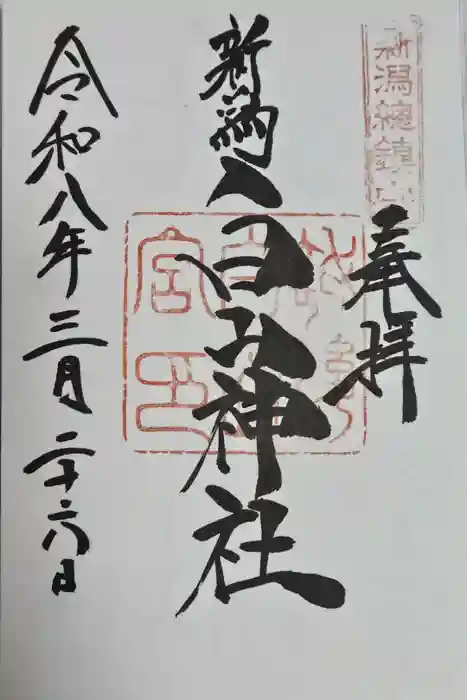 新潟總鎮守
奉拝
新潟白山神社
宮印
令和八年三月二十六日